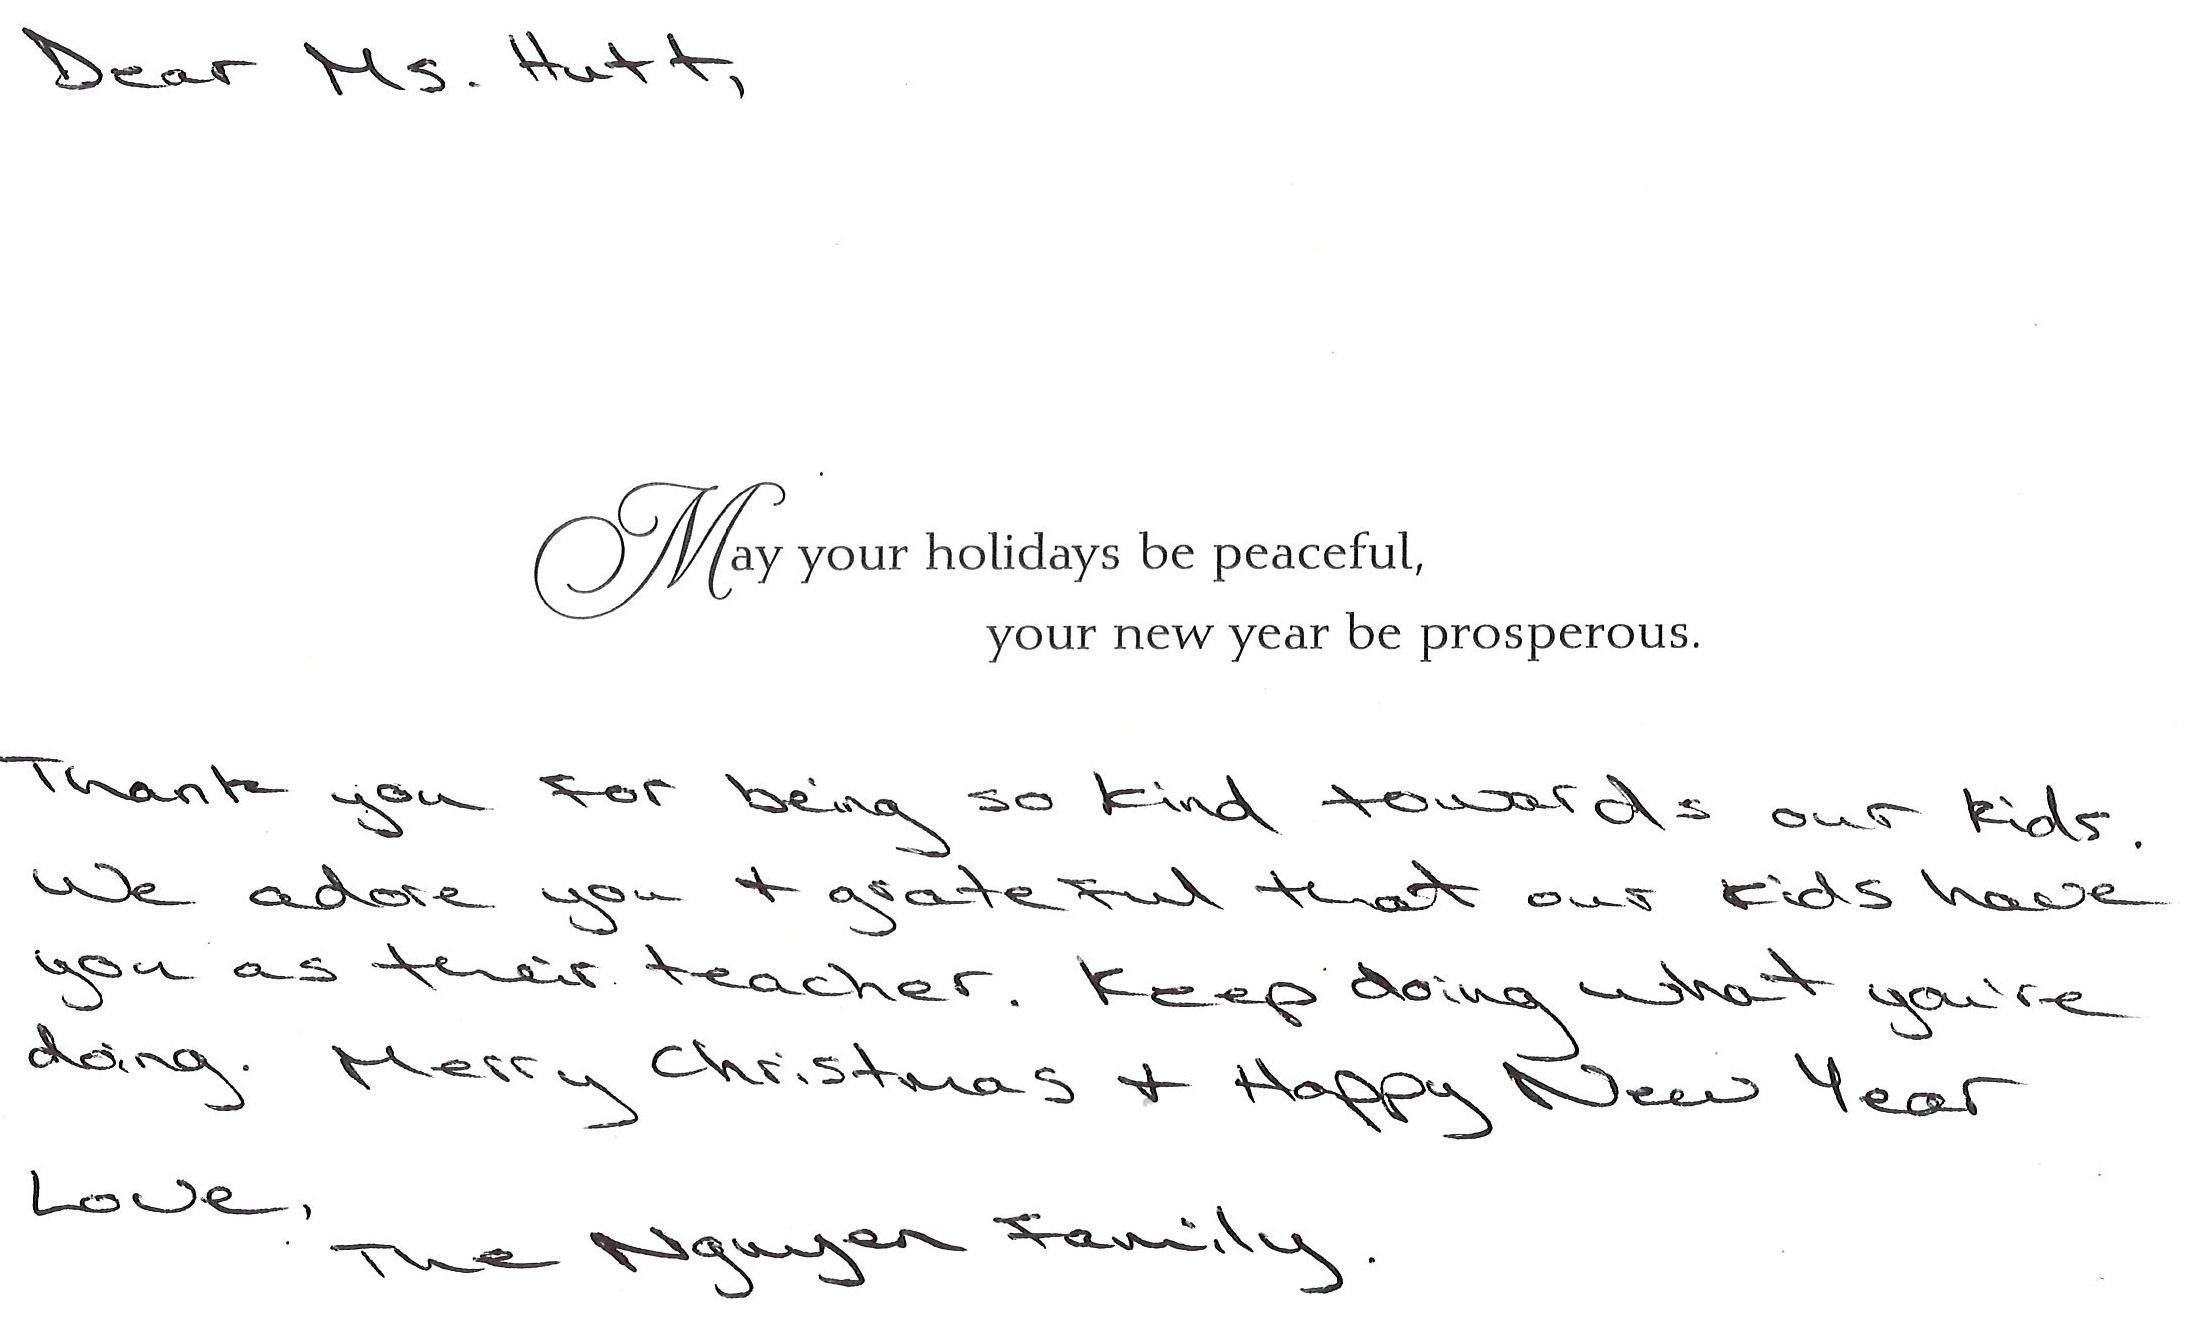 Dear Ms. Hutt,
May your holidays be peaceful,
your new year be prosperous.
Thank you for being so kind towards our kids.
We adore you + grateful that our kids have
you as their teacher. Keep doing what you're
doing. Merry Christmas + Happy New Year
Love,
The Nguyen Family.